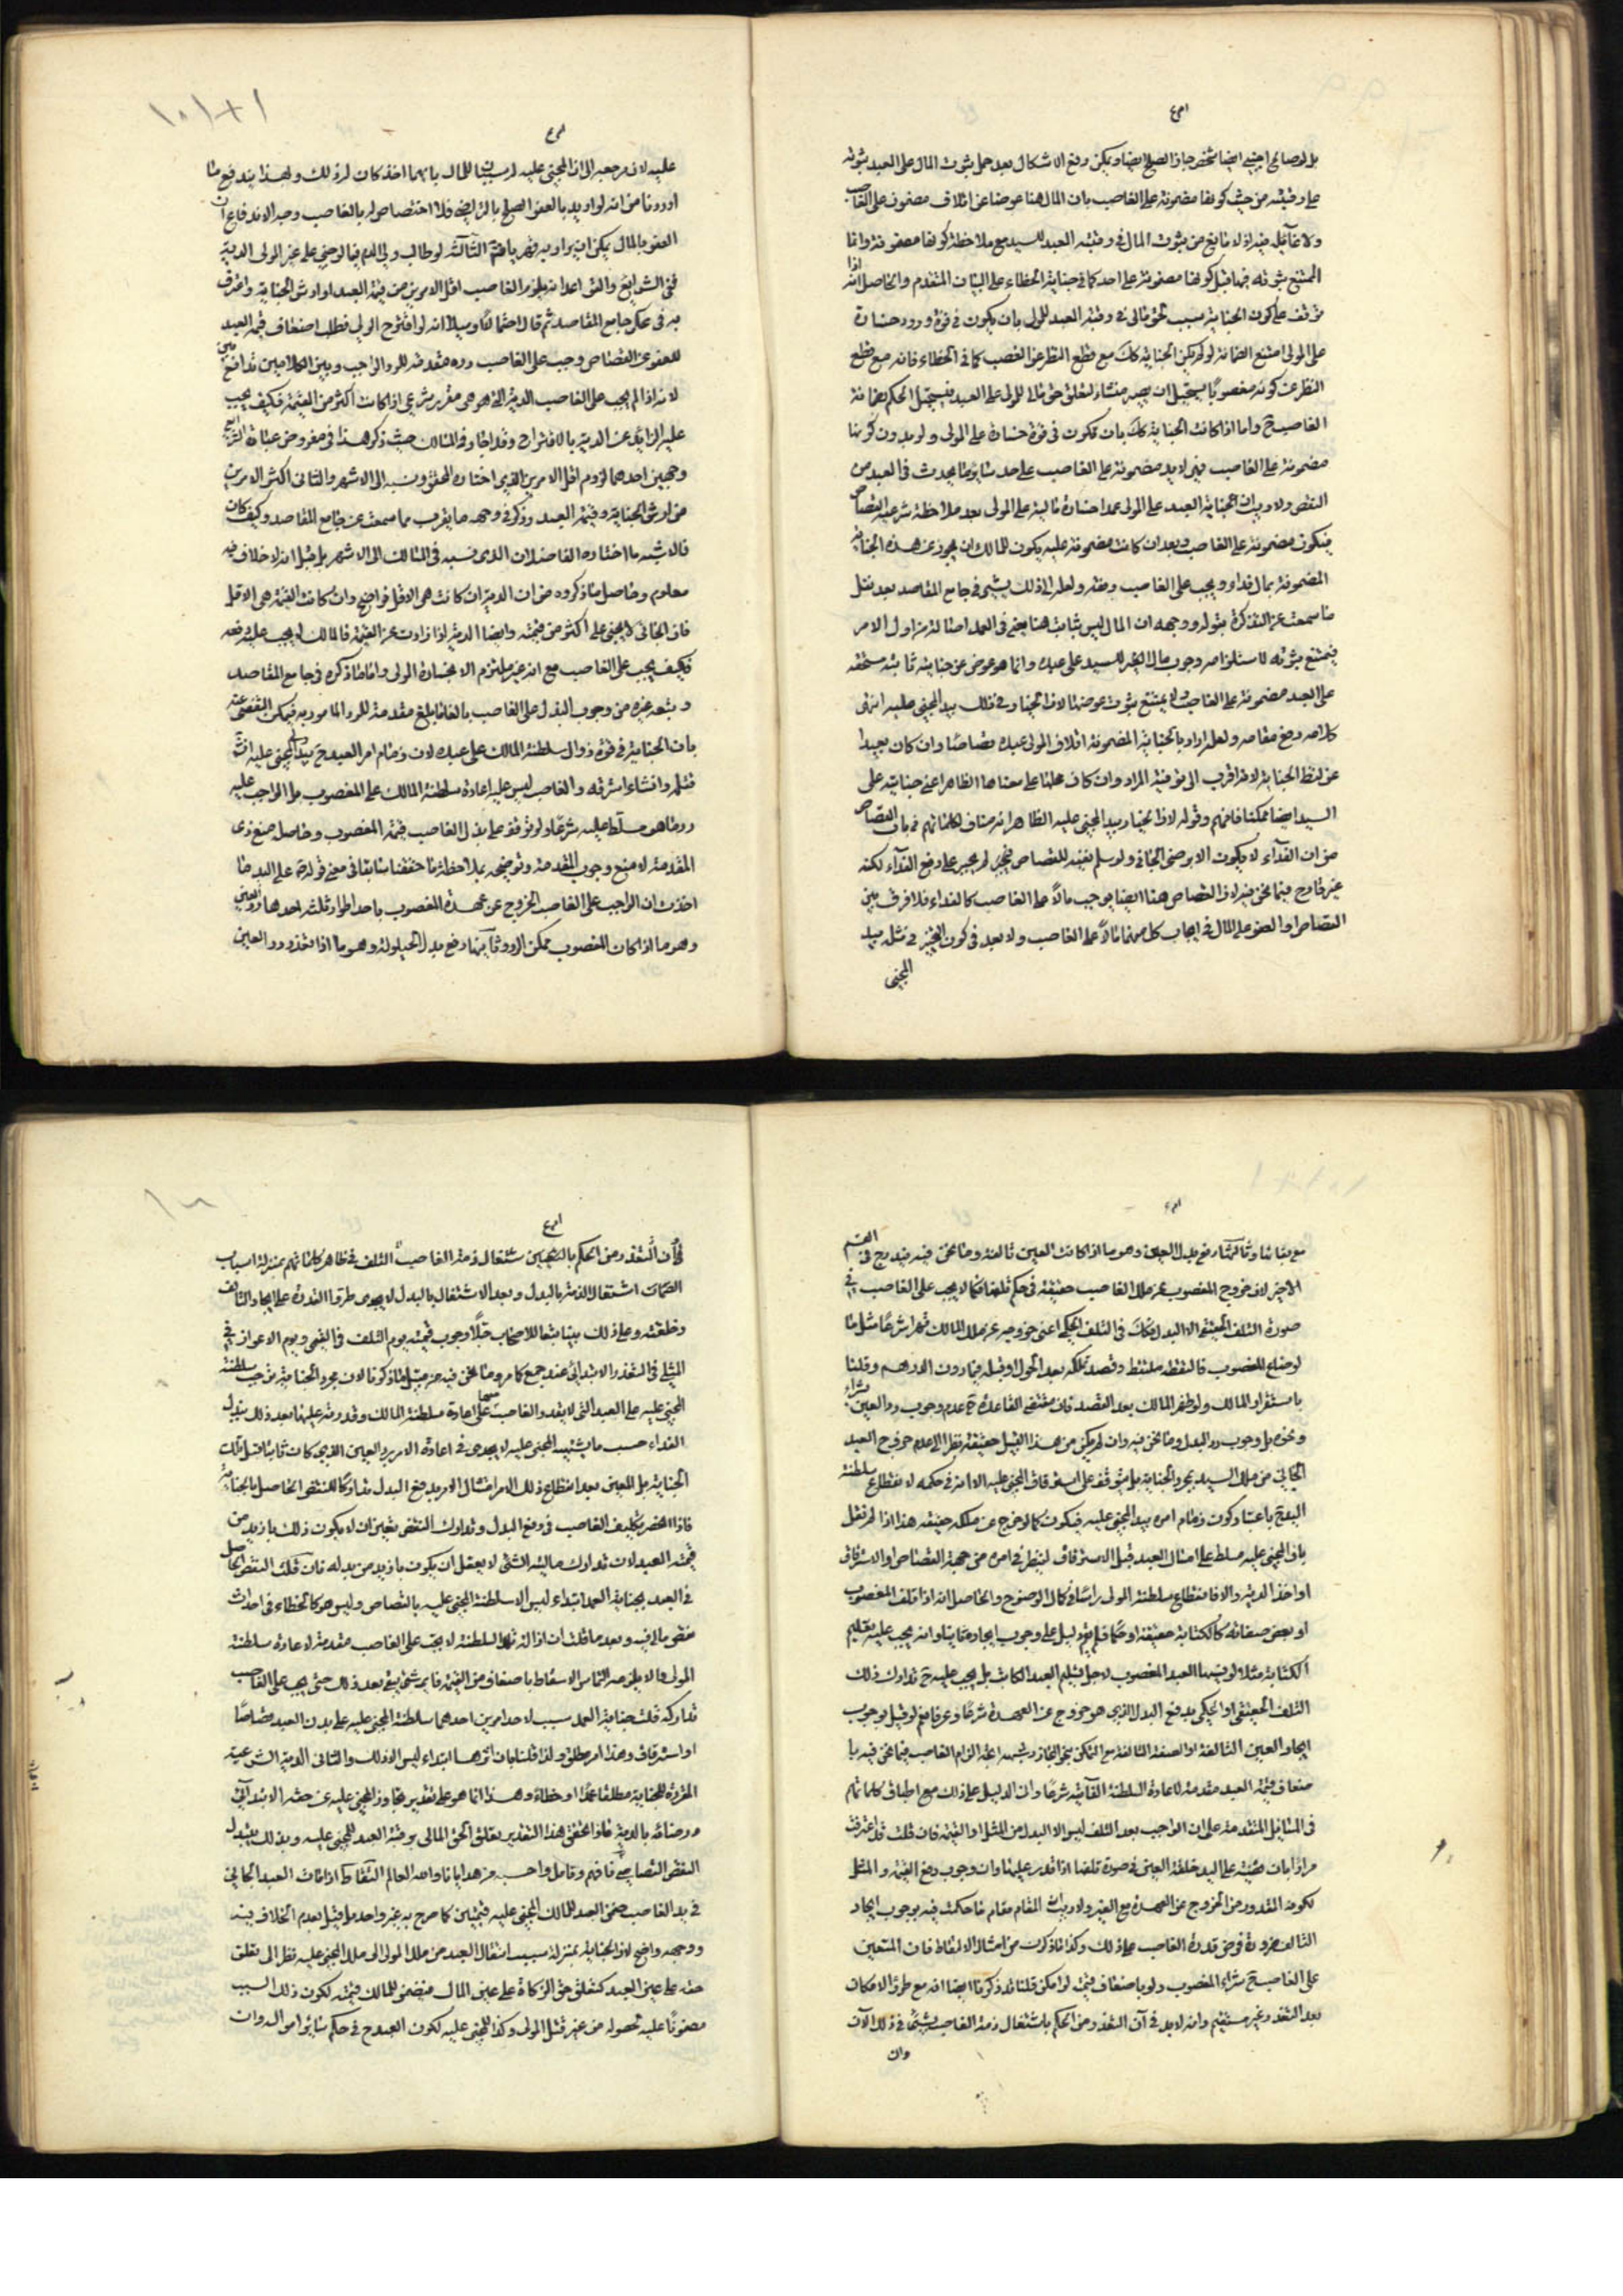 بل لو صالح اجنبي ايضا شخص جاز الصلح ايضا ويمكن دفع الاشكال بعد حمل ثبوت المال على العبد ثبوته
على رقبته من حيث كونها مضمونة على الغاصب بان المال هنا عوضا عن اتلاف مضمون على الغاصب
ولا غائلة فيه اذ لا مانع من ثبوت المال في رقبة العبد للسيد مع ملاحظة كونها مضمونة وانما
الممتنع ثبوته فيها قبل كونها مضمونة على احد كما في جناية الخطاء على البيان المتقدم والحاصل انه اذا
توقف على كون الجناية سبب تحق مالي في رقبة العبد للمولى بان يكون في قوة ورود خسارة
على المولى امتنع الضمانة لو لم يكن الجناية كك مع قطع النظر عن الغصب كما في الخطاء فانه مع قطع
النظر عن كونه مغصوبا يستحيل ان يصير منشاء لتعلق حق مالي للمولى على العبد فيستحيل الحكم بضمانة
الغاصب ح واما اذا كانت الجناية كك بان يكون في قوة خسارة على المولى ولو بدون كونها
مضمونة على الغاصب فهي لا بد مضمونة على الغاصب على حد سائر ما يحدث في العبد من
النقص ولا ريب ان جناية العبد على المولى عمدا خسارة مالية على المولى بعد ملاحظة شرعية القصاص
فيكون مضمونة على الغاصب وبعد ان كانت مضمونة عليه يكون للمالك ان يجوز عن هذه الجناية
المضمونة بمال فداء ويجب على الغاصب دفعه ولعله الى ذلك يشير في جامع المقاصد بعد نقل
ما سمعت عن التذكرة بقوله ووجهه ان المال ليس بثابت هنا يعني في العمد اصالة من اول الامر
فيمتنع ثبوته لاستلزامه وجوب مال الغير للسيد على عبده وانما هو عوض عن جناية ثابتة مستحقة
على العبد مضمونة على الغاصب ولا يمتنع ثبوت عوضها لان الخيار في ذلك بيد المجني عليه انتهى
كلامه رفع مقامه ولعله اراد بالجناية المضمونة اتلاف المولى عبده قصاصا وان كان بعيدا
عن لفظ الجناية لانه اقرب الى توفية المراد وان كان حملها على معناها الظاهر اعني جنايته على
السيد ايضا ممكنا فافهم وقوله لان الخيار بيد المجني عليه الظاهر انه مناف لكلماتهم في باب القصاص
من ان الفداء لا يكون الا برضى الجاني ولو سلم نفسه للقصاص فتجبر لم يجبر على دفع الفداء لكنه
غير قادح فيما نحن فيه اذ القصاص هنا ايضا يوجب مالا على الغاصب كالفداء فلا فرق بين
القصاص او العفو على المال في ايجاب كل منهما مالا على الغاصب ولا بعد في كون التخيير في مثله بيد
المجني
عليه لان مرجعه الى ان المجني عليه لم سببا للمال بايهما اخذ كان له ذلك وبهذا يندفع ما
اوردنا من انه لو اريد بالعفو الصلح بالتراضي فلا اختصاص له بالغاصب وجه الاندفاع ان
العفو بالمال يمكن ان يراد به قهريا ثم الثالثة لو طالب ولي الدم فيما لو جنى على غير المولى الدية
ففي الشرايع والتحرير وعد انه يلزم الغاصب اقل الامرين من قيمة العبد او ارش الجناية واعترف
به في محكي جامع المقاصد ثم قال احتمالا وميلا انه لو اقترح الولي فطلب اضعاف قيمة العبد
للعفو عن القصاص وجب على الغاصب رده مقدمة للرد الواجب وبين الكلامين تدافع بين
لانه اذا لم يجب على الغاصب الدية التي هو هي مقرر شرعي اذا كانت اكثر من القيمة فكيف يجب
عليه الزايد عن الدية بالاقتراح وقد اجاد في المسالك حيث ذكر هذا في مفروض عبارة الشرايع
وجهين احدهما لزوم اقل الامرين الذي اختاره المحقق ونسبه الى الاشهر والثاني اكثر الامرين
من ارش الجناية وقيمة العبد وذكر في وجهه ما يقرب مما سمعت عن جامع المقاصد وكيف كان
فالاشبه ما اختاره الفاضلان الذي نسبه في المسالك الى الاشهر بل قيل انه لا خلاف فيه
معلوم وحاصل ما ذكروه من ان الدية ان كانت هي الاقل فواضح وان كانت القيمة هي الاقل
فان الجاني لا يجنى على اكثر من قيمته وايضا الدية اذا زادت عن القيمة فالمالك لا يجب عليه دفعه
فكيف يجب على الغاصب مع انه غير ملتزم الا بخسارة المولى واما ما ذكره في جامع المقاصد
وتبعه غيره من وجوب البذل على الغاصب بالغا ما بلغ مقدمة للرد المامور به فيمكن التفصي عنه
بان الجناية في قوة زوال سلطنة المالك على عبده لان زمام امر العبد ح بيد المجني عليه ان شاء
قتله وان شاء استرقه والغاصب ليس عليه اعادة سلطنة المالك على المغصوب بل الواجب عليه
رد ما هو مسلط عليه شرعا ولو توقف على بذل الغاصب قيمة المغصوب وحاصل منع ذي
المقدمة لا منع وجوب المقدمة وتوضيحه بملاحظة ما حققنا سابقا في معنى قوله ص على اليد ما
اخذت ان الواجب على الغاصب الخروج عن عهدة المغصوب باحد اطوار ثلثة احدها رد العين
وهو ما اذا كان المغصوب ممكن الرد وثانيها دفع بدل الحيلولة وهو ما اذا تعذر رد العين
مع بقائها وثالثها دفع بدل العين وهو ما اذا كانت العين تالفة وما نحن فيه مندرج في القسم
الاخير لان خروج المغصوب عن ملك الغاصب حقيقة في حكم تلفه فكما لا يجب على الغاصب في
صورة التلف الحقيقي الا البدل فكك في التلف الحكمي اعني خروجه عن ملك المالك قهرا شرعا مثل ما
لو ضاع المغصوب فالتقطه ملتقط وقصد تملكه بعد الحول او قبله فيما دون الدرهم وقلنا
باستقرار المالك ولو ظفر المالك بعد القصد فان مقتضى القاعدة ح عدم وجوب رد العين بشراء
ونحوه بل وجوب رد البدل وما نحن فيه وان لم يكن من هذا القبيل حقيقة نظرا الى عدم خروج العبد
الجاني من ملك السيد بمجرد الجناية بل متوقف على استرقاق المجني عليه الا انه في حكمه لانقطاع سلطنة
السيد ح باعتبار كون زمام امره بيد المجني عليه فيكون كما لو خرج عن ملكه حقيقة هذا اذا لم نقل
بان المجني عليه مسلط على امثال العبد قبل الاسترقاق لينظر في امره من جهة القصاص او الاسترقاق
او اخذ الدية والا فانقطاع سلطنة المولى راسا في كمال الوضوح والحاصل انه اذا تلف المغصوب
او بعض صفاته كالكتابة حقيقة او حكما فلم يقم دليل على وجوب ايجاد ما بقا وانه يجب عليه تعليم
الكتابة مثلا لو نسيها العبد المغصوب لاجل تسليم العبد الكاتب بل يجب عليه ح تدارك ذلك
التلف الحقيقي او الحكمي بدفع البدل الذي هو خروج عن العهدة شرعا وعرفا نعم لو قيل بوجوب
ايجاد العين التالفة او الصفة التالفة مع التمكن بنحو المجاز وشبهه اعني الزام الغاصب فيما نحن فيه با
ضعاف قيمة العبد مقدمة لاعادة السلطنة الفائتة شرعا واين الدليل على ذلك مع اطباق كلماتهم
في المسائل المتقدمة على ان الواجب بعد التلف ليس الا البدل من المثل او القيمة فان قلت قد اعترفت
مرارا بان قضية على اليد خلقة العين في صورة تلفها اذا قدر عليها وان وجوب دفع القيمة والمثل
لكونه المقدور من الخروج عن العهدة مع الغير ولا ريب ان المقام مقام ما حكمت فيه بوجوب ايجاد
التالف ضرورة فرض قدرة الغاصب على ذلك وكذا ما ذكرت من امثال الالتقاط فان المتعين
على الغاصب ح شراء المغصوب ولو باضعاف قيمته لو امكن قلنا قد ذكرنا ايضا انه مع طرو الامكان
بعد التعذر وغير مستقيم وانه لا بد في آن التعذر من الحكم باشتغال ذمة الغاصب بشيء في ذلك الآن
وان
في آن التعذر من الحكم بالتعيين اشتغال ذمة الغاصب التلف في ظاهر كلماتهم بمنزلة اسباب
الضمان اشتغال الذمة بالبدل وبعد الاشتغال بالبدل لا يجدي طرو القدرة على ايجاد التالف
وخلقته وعلى ذلك بينا تبعا للاصحاب قبلا وجوب قيمة يوم التلف في القيمي ويوم الاعواز في
المثلي في التعذر الابتدائي عند جمع كما مر وما نحن فيه من قبيل ما ذكرنا لان بمجرد الجناية ثبت سلطنة
المجني عليه على العبد التي لا يقدر الغاصب معها على اعادة سلطنة المالك وقدرته عليها بعد ذلك ببذل
الفداء حسب ما يشتهيه المجني عليه لا يجدي في اعادة الامر برد العين الذي كان ثابتا قبل تلك
الجناية بل المعين بعد انقطاع ذلك الامر امتثال الامر بدفع البدل تداركا للنقص الحاصل بالجناية
فاذا انحصر تكليف الغاصب في دفع البدل وتدارك النقص تعين ان لا يكون ذلك بازيد من
قيمة العبد لان تدارك مالية الشئ لا يعقل ان يكون بازيد من بدله فان قلت النقص الحاصل
في العبد بجناية العمد ابتداء ليس الا سلطنة المجني عليه بالقصاص وليس هو كالخطاء في احداث
نقص مالي فيه وبعد ما قلت ان ازالة تلك السلطنة لا يجب على الغاصب مقدمة لاعادة سلطنة
المولى والا يلزمه التماس الاسقاط باضعاف من القيمة فاي شئ يبقى بعد ذلك حتى يجب على الغاصب
تداركه قلت جناية العمد سبب لاحد امرين احدهما سلطنة المجني عليه على بدن العبد قصاصا
او استرقاق وهذا امر مطلق ولذا قلنا بان اثرها ابتداء ليس الا ذلك والثاني الدية الشرعية
المقررة للجناية مطلقا عمدا او خطاء وهذا انما هو على تقدير تجاوز المجني عليه عن حقه الابتدائي
ورضائه بالدية فاذا تحقق هذا التقدير تعلق الحق المالي برقبة العبد للمجني عليه وبذلك يتبدل
النقص القصاصي فافهم وتامل واحسبه من هدايانا والله العالم التقاط اذا مات العبد الجاني
في يد الغاصب ضمن العبد للمالك المجني عليه قيمتين كما صرح به غير واحد بل قيل بعدم الخلاف فيه
ووجهه واضح لان الجناية بمنزلة سبب انتقال العبد من ملك المولى الى ملك المجني عليه نظرا الى تعلق
حقه على عين العبد كتعلق حق الزكاة على عين المال فيضمن للمالك قيمته لكون ذلك السبب
مضمونا عليه لحصوله من غير قبل المولى وكذا للمجني عليه لكون العبد ح في حكم سائر امواله وان